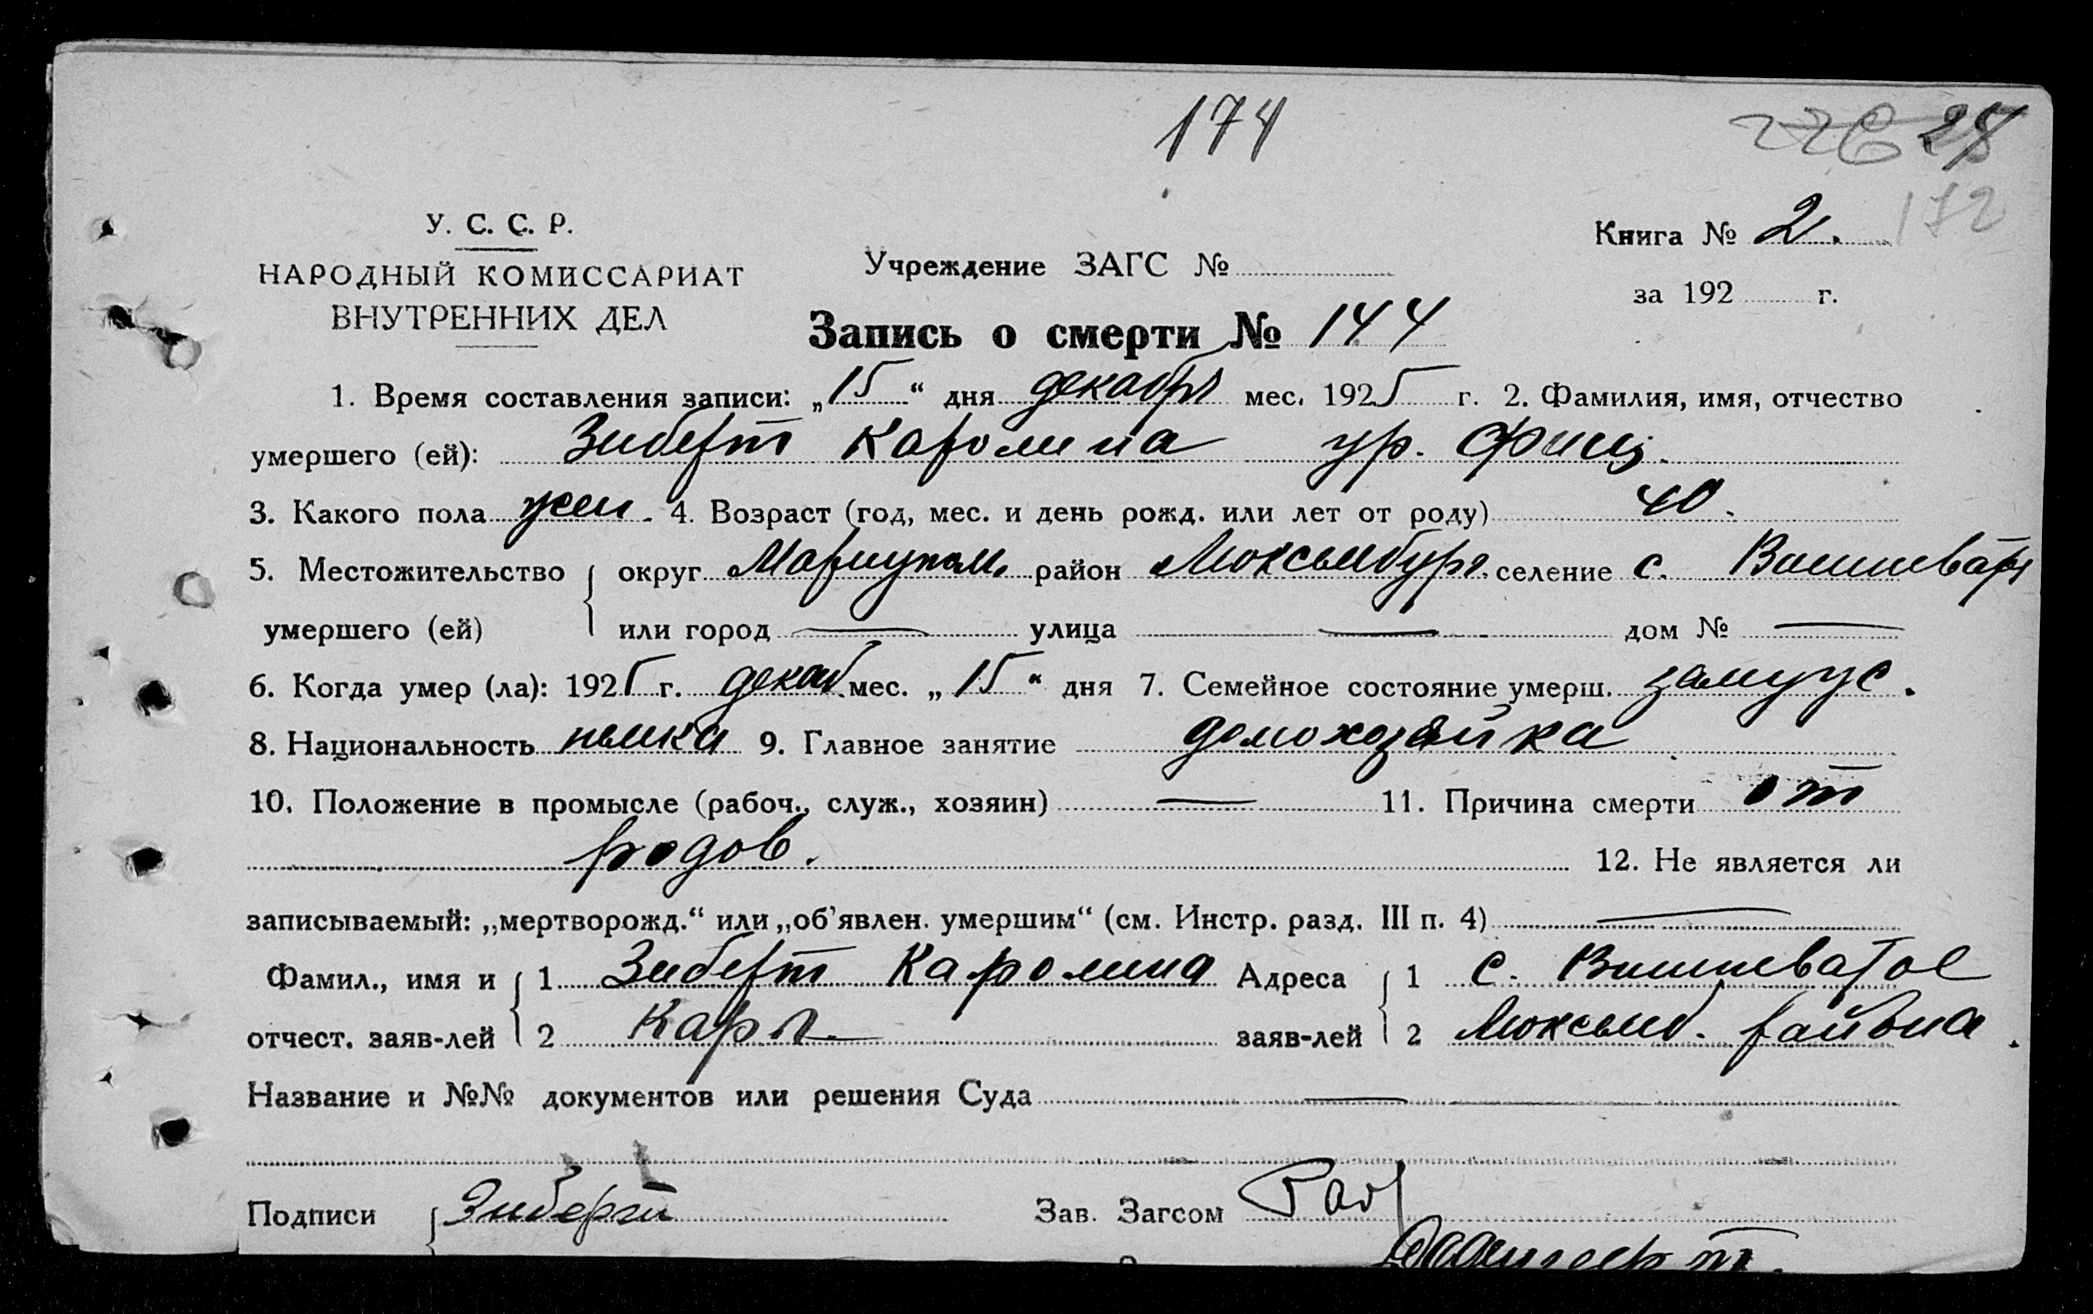 174
226 28
172
У. С. С. Р.
НАРОДНЫЙ КОМИССАРИАТ
ВНУТРЕННИХ ДЕЛ
Учреждение ЗАГС №
Книга № 2.
за 192 г.
Запись о смерти № 144
1. Время составления записи: „15“ дня декабря мес. 1925 г. 2. Фамилия, имя, отчество
умершего (ей): Зиберт Каролина ур. Финц.
3. Какого пола жен. 4. Возраст (год, мес. и день рожд. или лет от роду) 40.
5. Местожительство округ Мариупол. район Люксембург. селение с. Вишневатое
умершего (ей) или город — улица — дом № —
6. Когда умер (ла): 1925 г. декаб. мес. „15“ дня 7. Семейное состояние умерш. замуж.
8. Национальность немка 9. Главное занятие домохозяйка
10. Положение в промысле (рабоч., служ., хозяин) — 11. Причина смерти от
родов. 12. Не является ли
записываемый: „мертворожд.“ или „об'явлен. умершим“ (см. Инстр. разд. III п. 4) —
Фамил., имя и 1 Зиберт Каролина Адреса 1 с. Вишневатое
отчест. заяв-лей 2 Карл. заяв-лей 2 Люксемб. района.
Название и №№ документов или решения Суда —
Подписи Зиберт Зав. Загсом